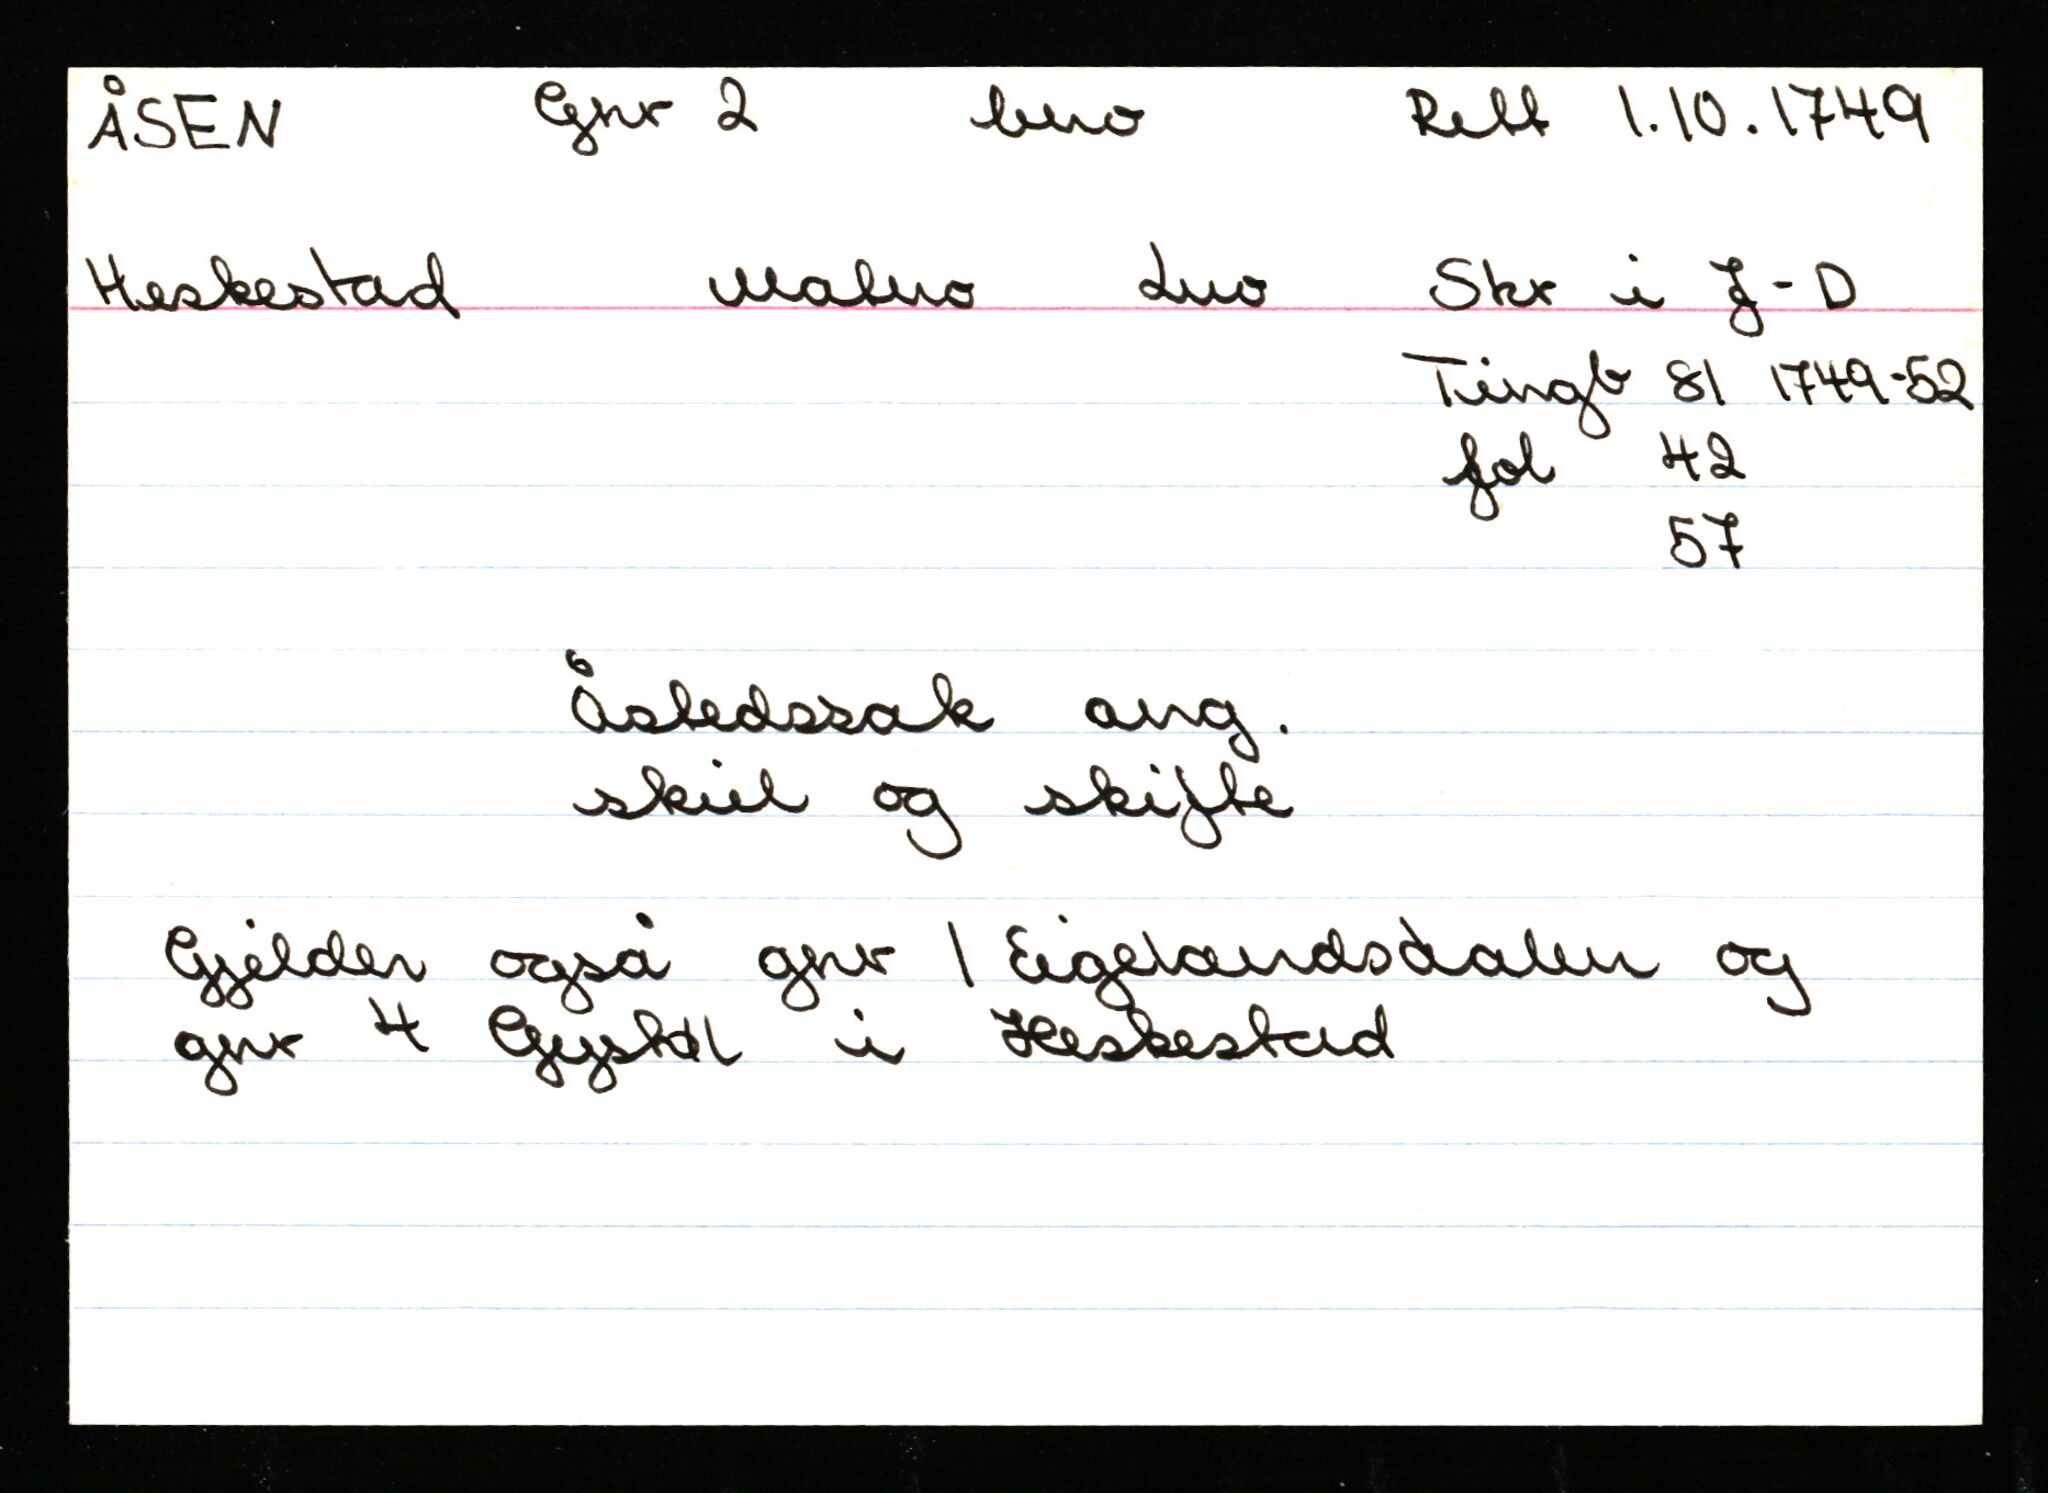 ÅSEN Gnr 2 bno Rett 1.10.1749
Heskestad Matno Lno Skr i J-D
Tingb 81 1749-52
fol 42
57
Åstedssak ang.
skiel og skifte
Gjelder også gnr 1 Eigelandsdalen og
gnr 4 Gystøl i Heskestad